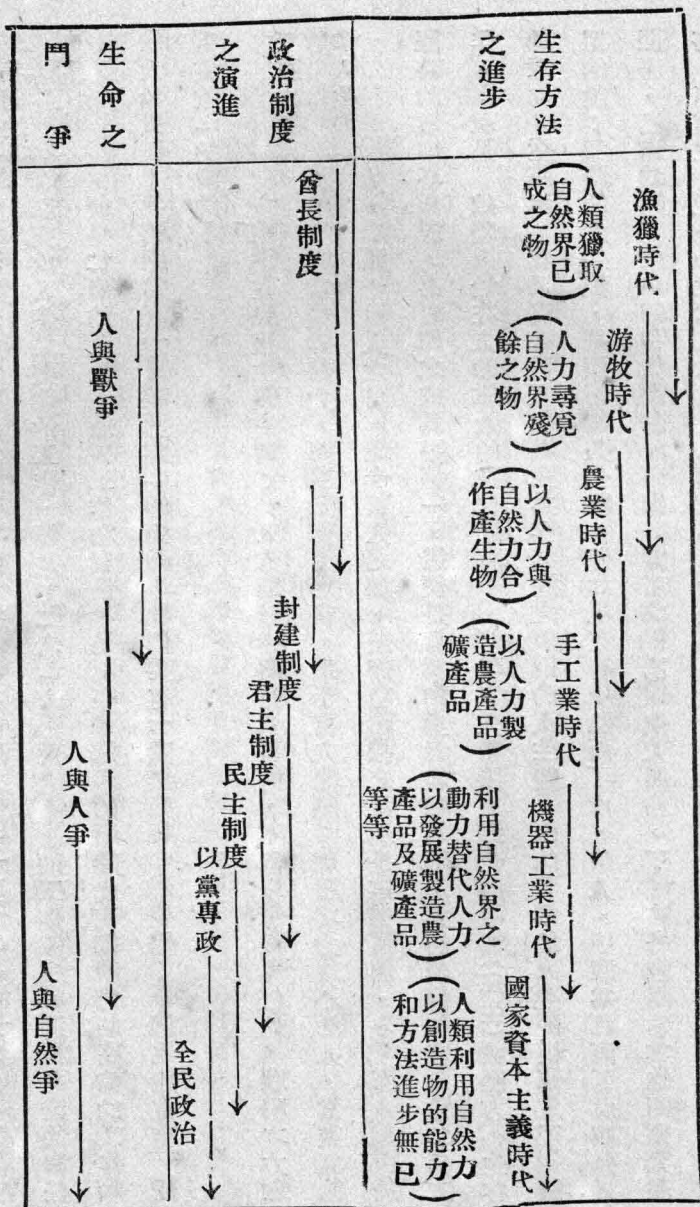 生存方法
之進步
漁獵時代
(人類獵取
自然界已
成之物)
游牧時代
(人力尋覓
自然界殘
餘之物)
農業時代
(以人力與
自然力合
作產生物)
手工業時代
(以人力製
造農產品
礦產品)
機器工業時代
(利用自然界之
動力替代人力
以發展製造農
產品及礦產品
等等)
國家資本主義時代
(人類利用自然力
以創造物的能力
和方法進步無已)
政治制度
之演進
酋長制度
封建制度
君主制度
民主制度
以黨專政
全民政治
生命之
鬥爭
人與獸爭
人與人爭
人與自然爭